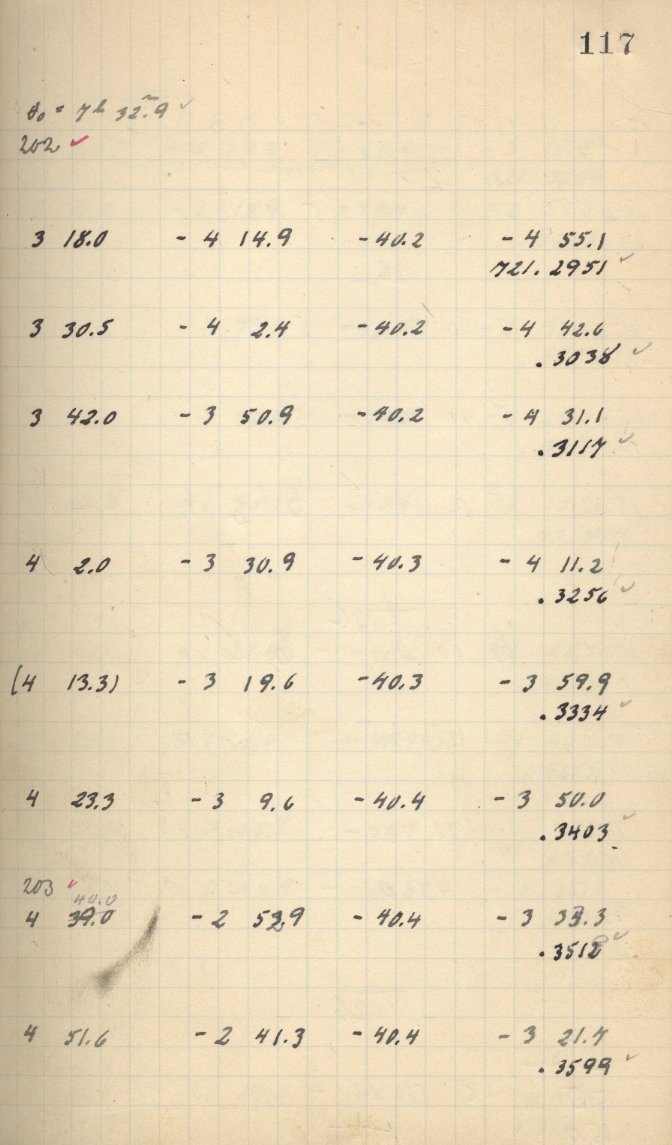 117
θ₀ = 7ʰ 32.ᵐ9 ✓
202 ✓
3 18.0 - 4 14.9 -40.2 - 4 55.1
721.2951 ✓
3 30.5 - 4 2.4 -40.2 -4 42.6
.3038 ✓
3 42.0 - 3 50.9 -40.2 - 4 31.1
.3117 ✓
4 2.0 - 3 30.9 -40.3 - 4 11.2
.3256 ✓
(4 13.3) - 3 19.6 -40.3 - 3 59.9
.3334 ✓
4 23.3 - 3 9.6 -40.4 - 3 50.0
.3403 ✓
203 ✓
40.0
4 39.0 - 2 52.9 - 40.4 - 3 33.3
.3512 ✓
4 51.6 - 2 41.3 - 40.4 - 3 21.7
.3599 ✓